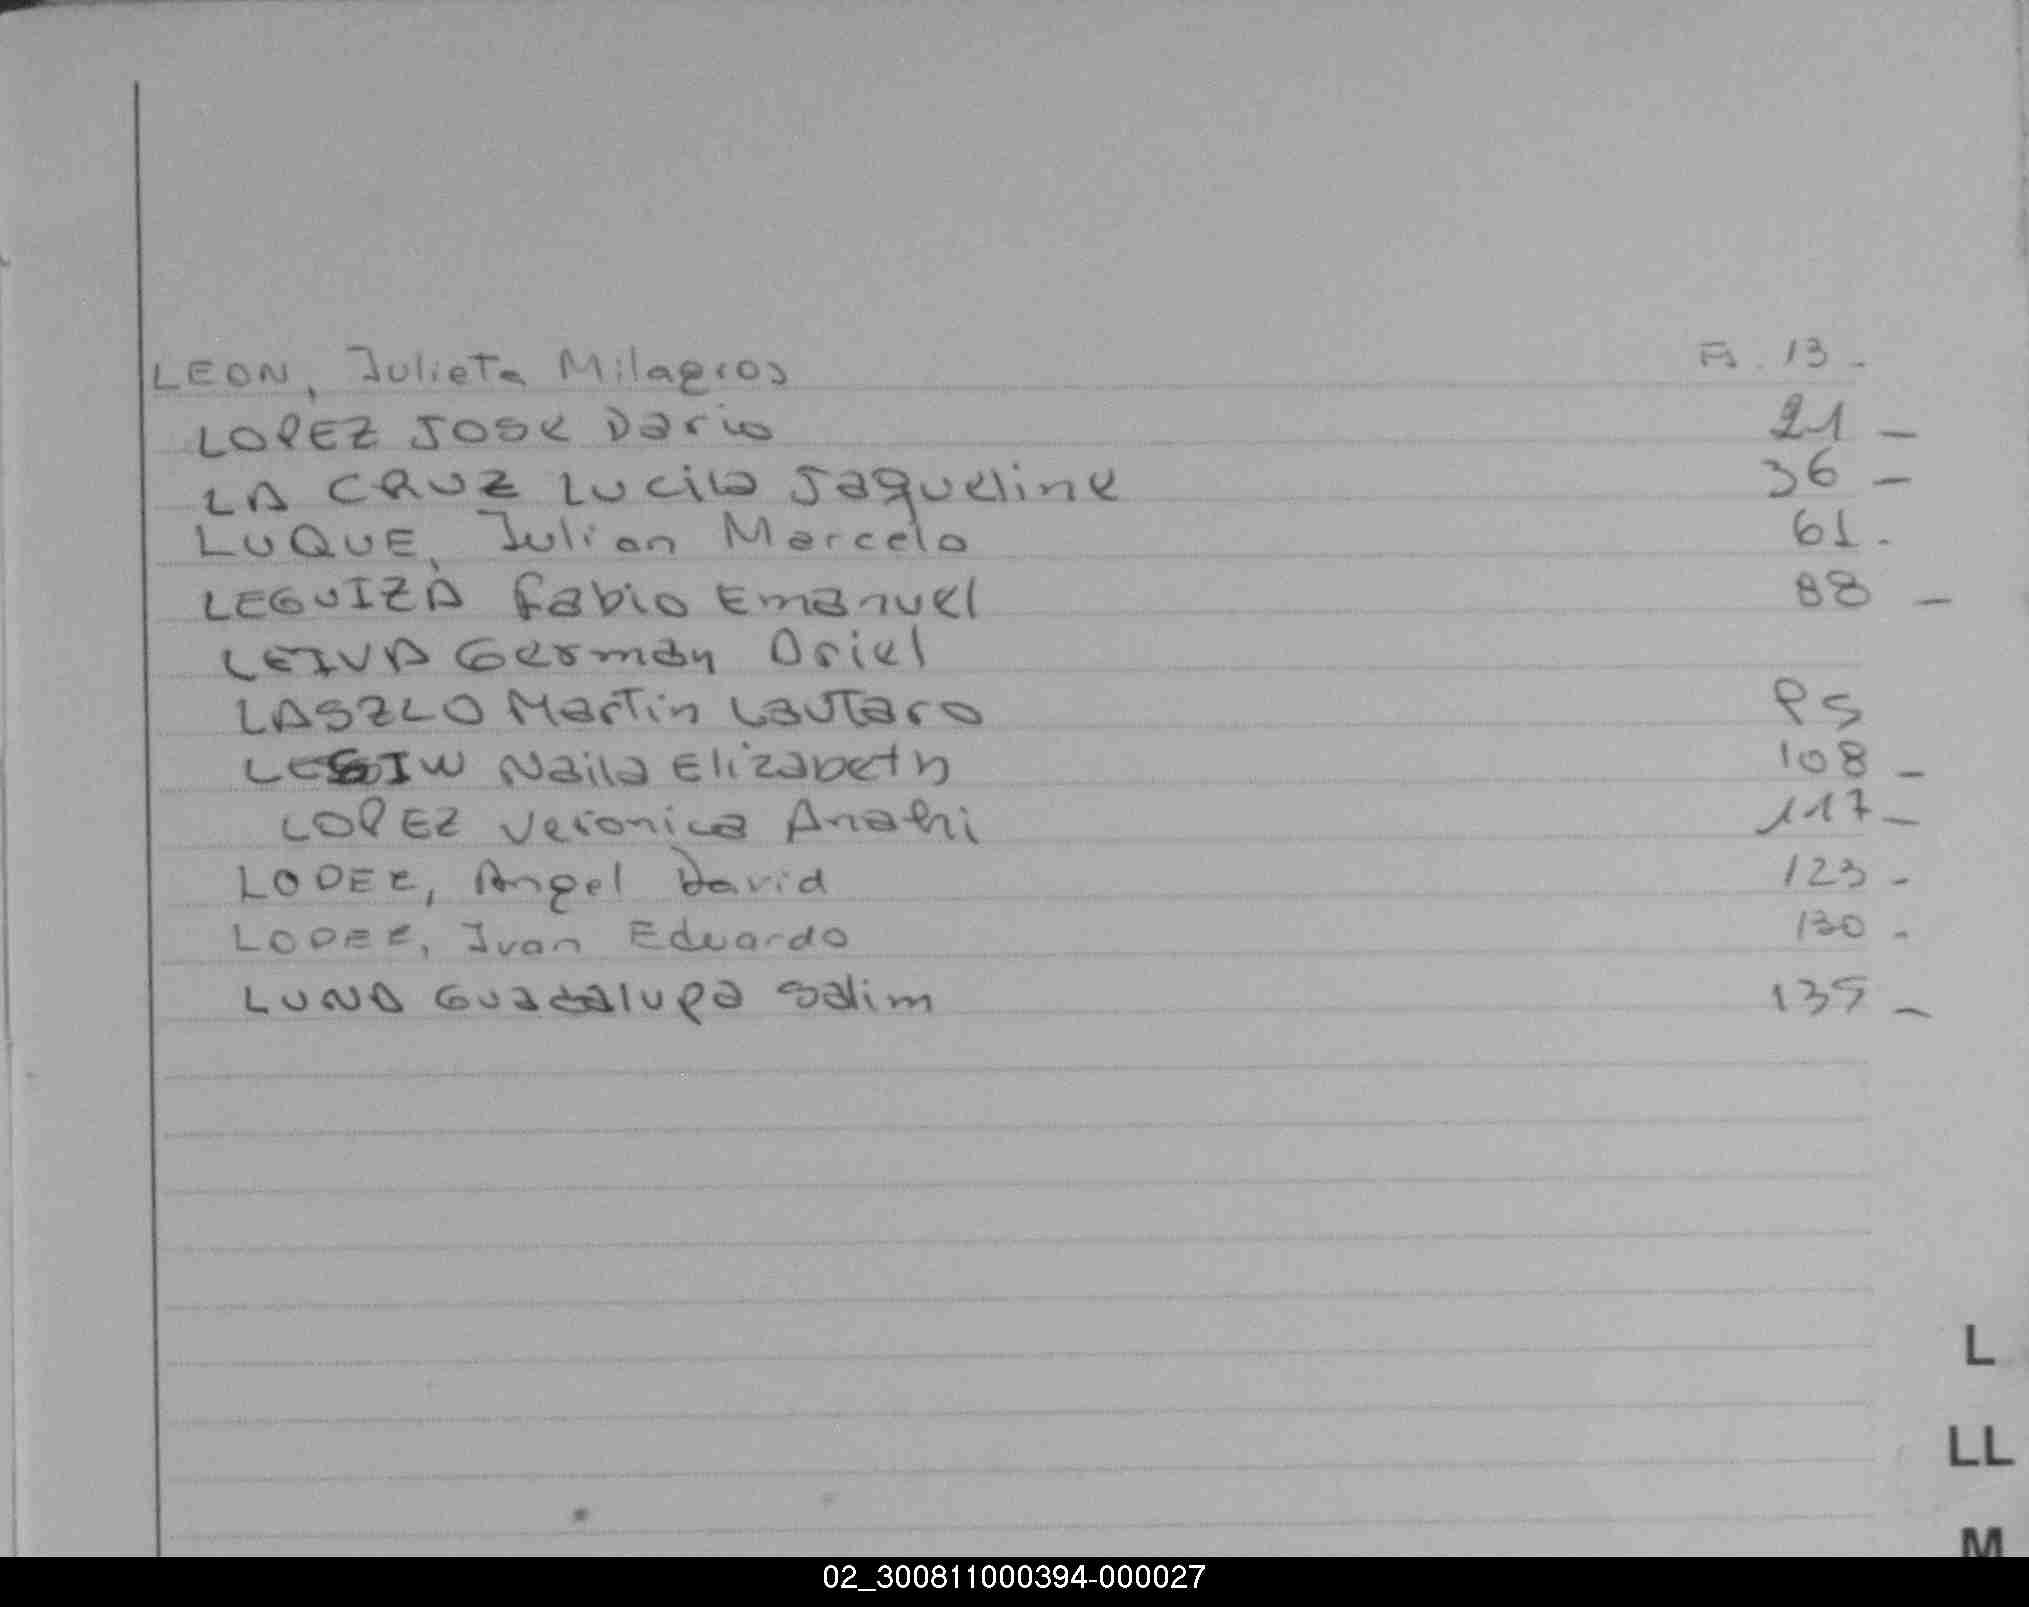 LEON, Julieta Milagros Fs. 13 -
LOPEZ JOSE Dario 21 -
LA CRUZ Lucila Jaqueline 36 -
LUQUE, Julian Marcelo 61 -
LEGUIZA Fabio Emanuel 88 -
LEIVA German Ariel
LASZLO Martin Lautaro 95
Naila Elizabeth 108 -
LOPEZ Veronica Anahi 117 -
LOPEZ, Angel David 123 -
LOPEZ, Ivan Eduardo 130 -
LUNA Guadalupa Salim 135 -
L
LL
M
02_300811000394-000027